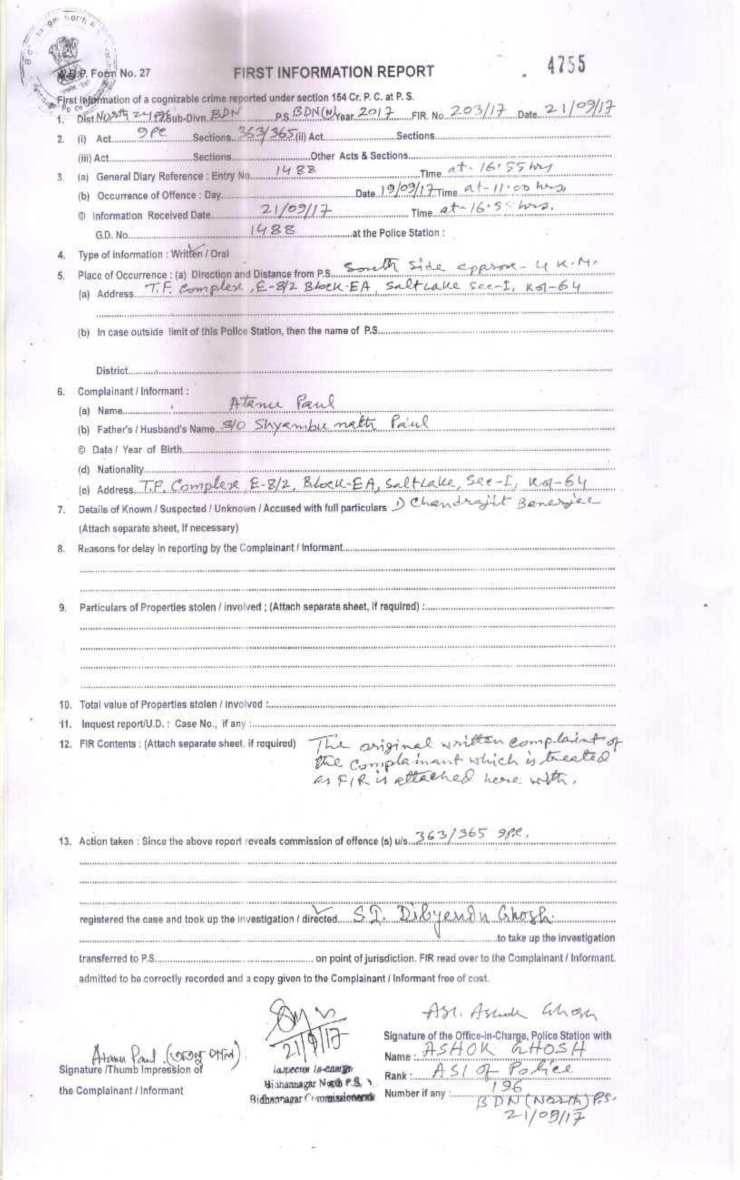 W.B.P. Form No. 27 FIRST INFORMATION REPORT 4755
First Information of a cognizable crime reported under section 154 Cr. P. C. at P. S.
1. Dist. North 24 Pgs Sub-Divn. BDN P.S. BDN(N) Year 2017 FIR. No. 203/17 Date 21/09/17
2. (i) Act IPC Sections 363/365 (ii) Act Sections
(iii) Act Sections Other Acts & Sections
3. (a) General Diary Reference : Entry No. 1488 Time at- 16.55 hrs
(b) Occurrence of Offence : Day Date 19/09/17 Time at- 11.00 hrs
© Information Received Date 21/09/17 Time at- 16.55 hrs.
G.D. No. 1488 at the Police Station :
4. Type of information : Written / Oral
5. Place of Occurrence : (a) Direction and Distance from P.S. South Side approx- 4 K.M.
(a) Address T.F. Complex, E-8/2 Block-EA, SaltLake Sec-I, Kol-64
(b) In case outside limit of this Police Station, then the name of P.S.
District
6. Complainant / Informant :
(a) Name Atanu Paul
(b) Father's / Husband's Name S/O Shyambu nath Paul
© Date / Year of Birth
(d) Nationality
(e) Address T.F. Complex, E-8/2, Block-EA, SaltLake, Sec-I, Kol-64
7. Details of Known / Suspected / Unknown / Accused with full particulars 1) Chandrajit Banerjee
(Attach separate sheet, If necessary)
8. Reasons for delay in reporting by the Complainant / Informant
9. Particulars of Properties stolen / involved ; (Attach separate sheet, if required) :
10. Total value of Properties stolen / involved :
11. Inquest report/U.D. : Case No., if any :
12. FIR Contents : (Attach separate sheet, if required) The original written complaint of
the complainant which is treated
as FIR is attached here with.
13. Action taken : Since the above report reveals commission of offence (s) u/s. 363/365 IPC.
registered the case and took up the investigation / directed S.I. Dibyendu Ghosh
to take up the investigation
transferred to P.S. on point of jurisdiction. FIR read over to the Complainant / Informant.
admitted to be correctly recorded and a copy given to the Complainant / Informant free of cost.
ASI. Ashok Ghosh
Signature of the Office-in-Charge, Police Station with
Name : ASHOK GHOSH
Rank : ASI of Police
Number if any : 196
BDN (North) P.S.
21/09/17
21/9/17
Inspector In-charge
Bidhannagar North P.S.
Bidhannagar Commissionerate
Atanu Paul
Signature /Thumb Impression of
the Complainant / Informant